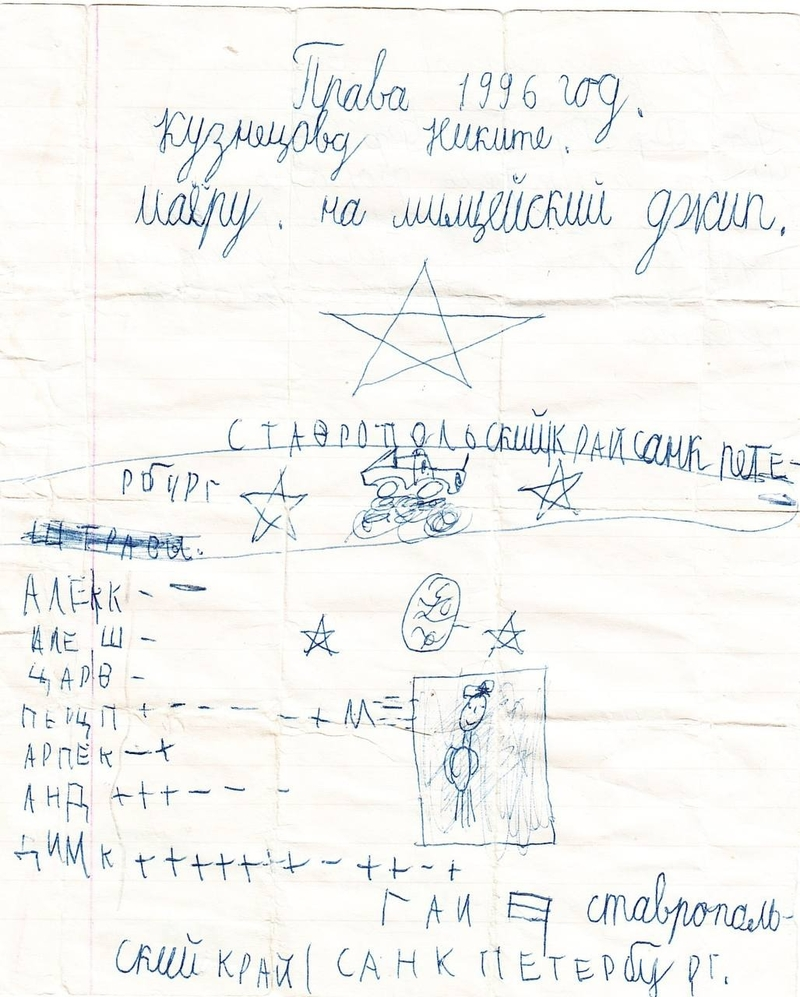 Права 1996 год.
Кузнецову Никите.
маёру. на милицейский джип.
СТАВРОПОЛЬСКИЙ КРАЙ САНК ПЕТЕ-
РБУРГ
ШТРАВЫ.
АЛЕКК - -
АЛЕШ -
ЦАРВ -
ПЕРЦП + - - - - - + М
АРПЕК - +
АНД + + + - - -
ДИМК + + + + + + + - + + - +
ГАИ ставрополь-
ский КРАЙ | САНК ПЕТЕРбУРГ.